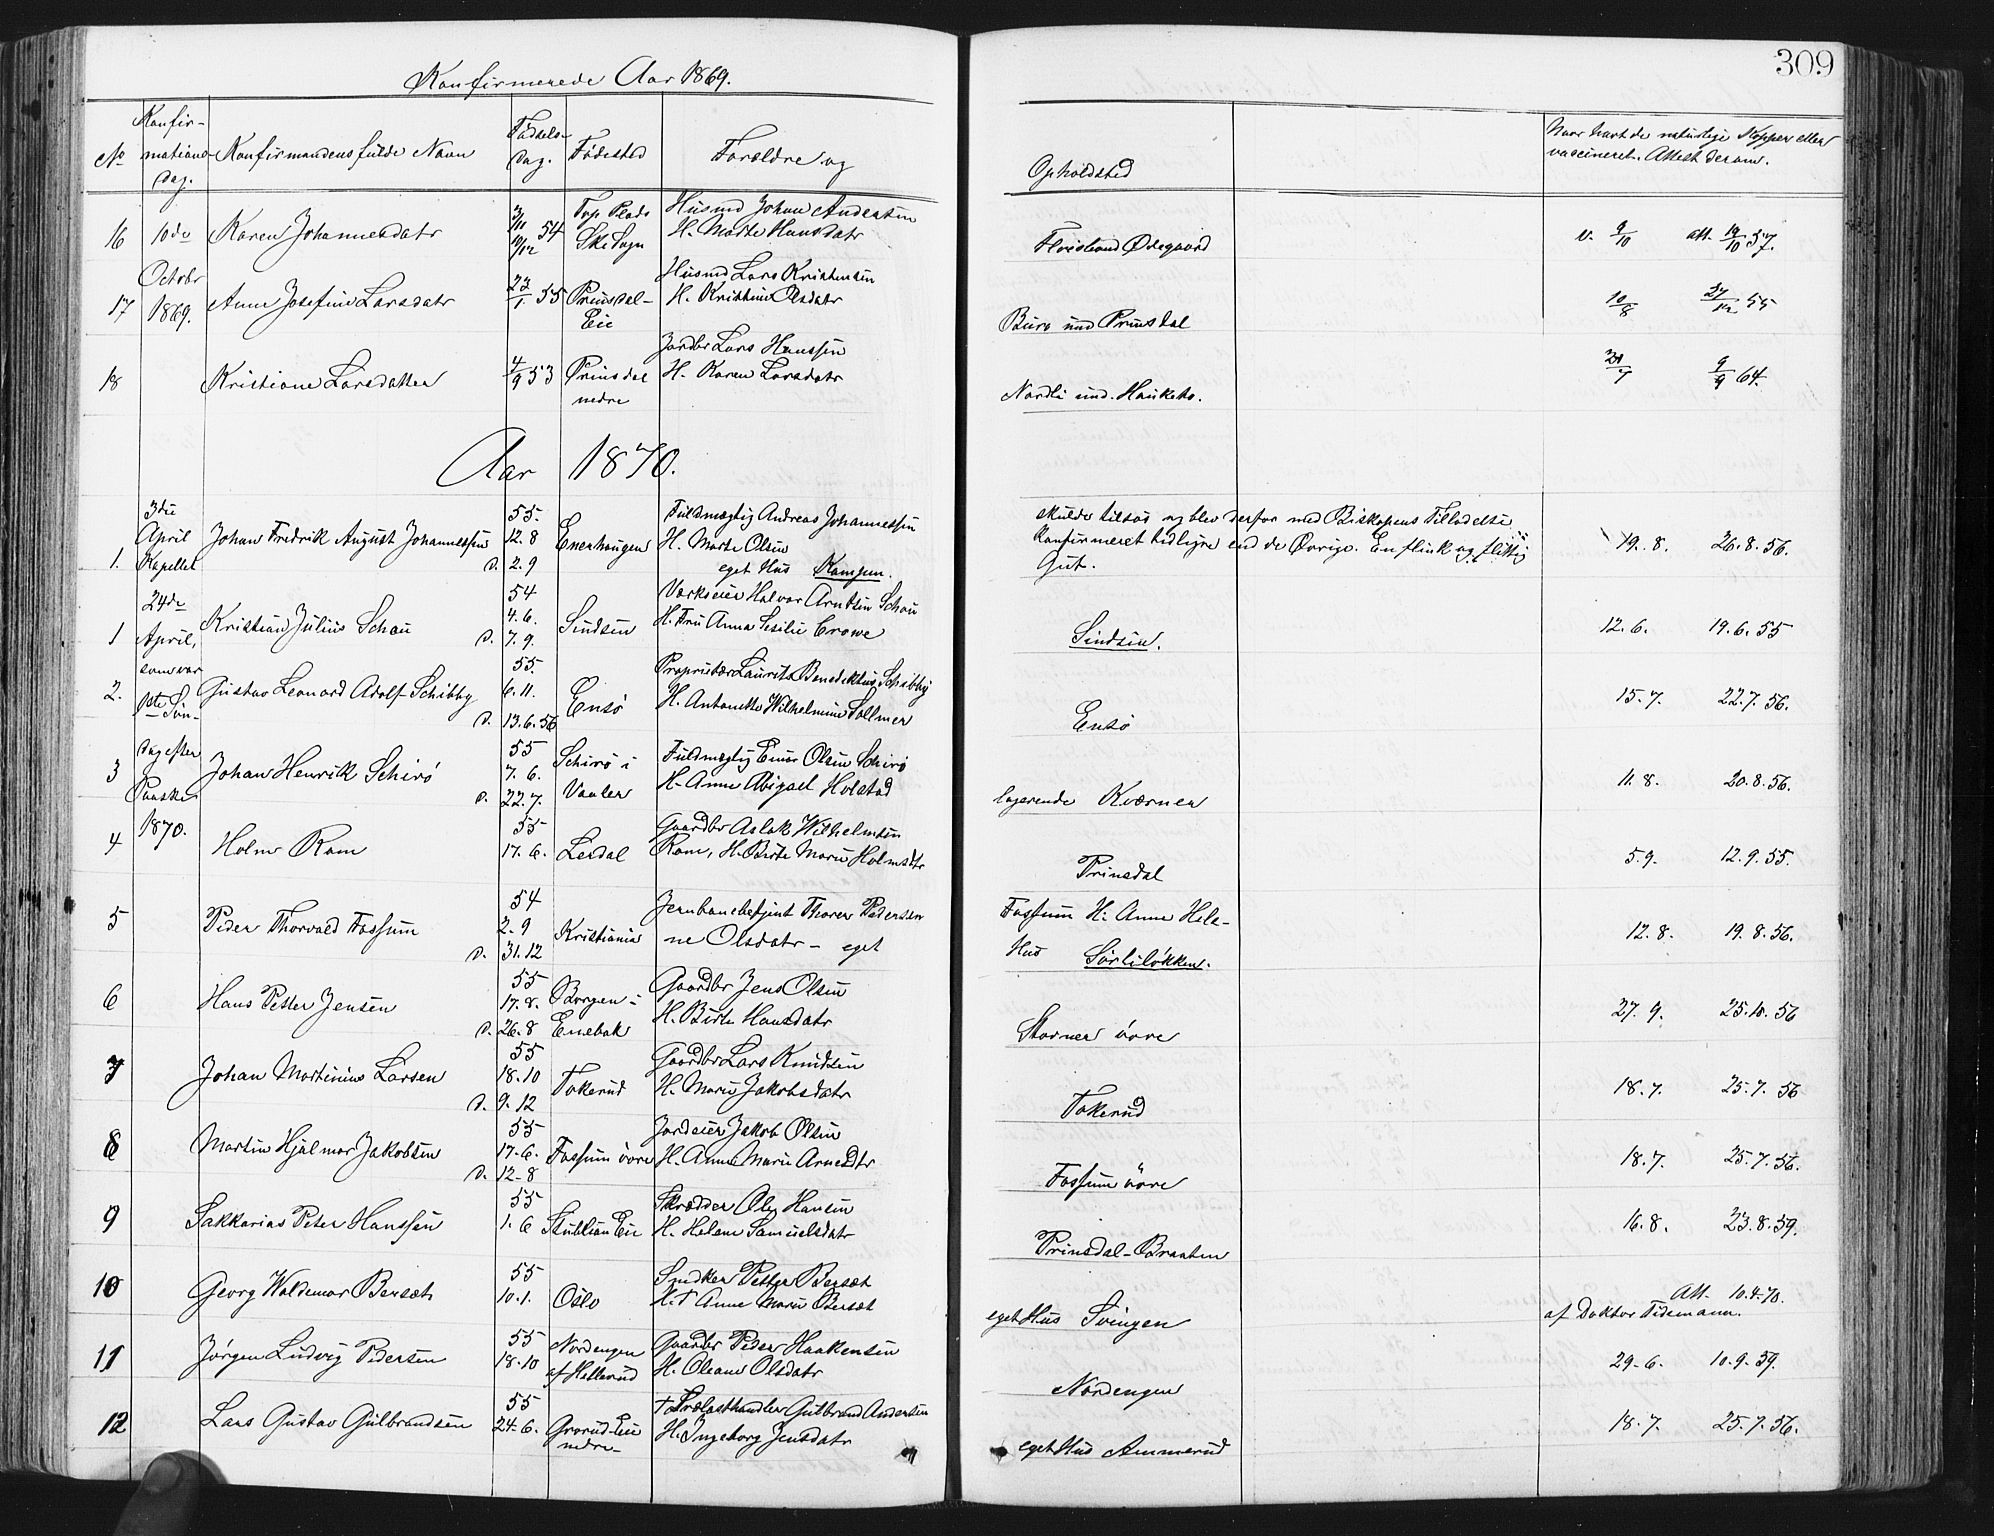 309
Konfirmerede Aar 1869.
No Konfirmations dag. Konfirmandens fulde Navn Fødsels- dag. Fødested Forældre og Opholdsted Naar havt de naturlige Kopper eller vaccineret. Attest derom.
16 10de October 1869. Karen Johannesdatr 3/11 54 10/12 Plads Ski Sogn Husmd Johan Andersen
H. Marte Hansdatr Ødegaard v. 9/10 att. 19/10 57.
17 Anne Josefine Larsdatr 23/1 55 Prinsdal- Eie Husmd Lars Kristensen
H. Kristine Olsdatr und Prinsdal 10/8 27/12 55
18 Kristiane Larsdatter 4/9 53 Prinsdal nedre Jordbr Lars Hanssen
H. Karen Larsdatr Nordli und. Hauketo. 9/9 64.
Aar 1870.
1. 3die April Kapellet Johan Fredrik August Johannessen 55. 12.8 d. 2.9 Enerhaugen Fuldmægtig Andreas Johannessen
H. Marte Olsen
eget Hus Kampen.
skulde tilsøs og blev derfor med Biskopens Tilladelse
Konfirmeret tidligere end de Øvrige. En flink og flittig
Gut. 19. 8. 26. 8. 56.
1 24de April, som var 1ste Søn- dag efter Paaske 1870. Kristian Julius Schou 54 4.6. d. 7.9. Sindsen Værkseier Halvor Arntsen Schou
H. Fru Anna Sesilie Crowe Sindsen. 12. 6. 19. 6. 55
2. Gustav Leonard Adolf Schibby 55. 6.11. d. 13.6.56 Ensø Proprietær Laurits Benediktus Schibby
H. Antonette Wilhelmine Sollmer Ensø 15. 7. 22. 7. 56.
3 Johan Henrik Schirø 55 7. 6. d. 22.7. Schirø i Vaaler Fuldmægtig Einar Olsen Schirø
H. Anne Abigael Holstad logerende Kværner 11. 8. 20. 8. 56.
4 Holm Ram 55 17. 6. Lerdal Gaardbr Aslak Wilhelmsen
Ram, H. Birte Marie Holmsdtr Prinsdal 5. 9. 12. 9. 55.
5 Peder Thorvald Fossum 54 2.9 d. 31.12 Kristiania Jernbanebetjent Thorer Pedersen Fossum H. Anne Hele-
ne Olsdatr - eget Hus Sørliløkken. 12. 8. 19. 8. 56.
6 Hans Petter Jensen 55 17.8. d. 26.8 Borgen i Enebak Gaardbr Jens Olsen
H. Birte Hansdatr Stovner øvre 27. 9. 25.10. 56
7 Johan Martinius Larsen 55 18.10 d. 9.12 Tokerud Gaardbr Lars Knudsen
H. Marie Jakobsdatr Tokerud 18. 7. 25. 7. 56
8 Martin Hjalmar Jakobsen 55 17.6. d. 12.8 Fossum øvre Jordeier Jakob Olsen
H. Anne Marie Arnesdtr Fossum øvre 18. 7. 25. 7. 56.
9 Sakkarias Peter Hanssen 55 1. 6 Stubljan Eie Skrædder Ole Hansen
H. Helene Samuelsdatr Prinsdal-Braaten 16. 8. 23. 8. 59.
10 Georg Waldemar Berset 55 10.1. Oslo Snedker Petter Berset
H. Anne Marie Berset eget Hus Svingen Att. 10.4.70.
af Doktor Tidemann.
11 Jørgen Ludvig Pedersen 55 18.10 Nordengen af Hellerud Gaardbr Peder Haakensen
H. Oleane Olsdatr Nordengen 29. 6. 10. 9. 59.
12 Lars Gustav Gulbrandsen 55 24.6. Grorud-Eie nedre Trælasthandler Gulbrand Andersen
H. Ingeborg Jensdatr eget Hus Ammerud 18. 7. 25. 7. 56.